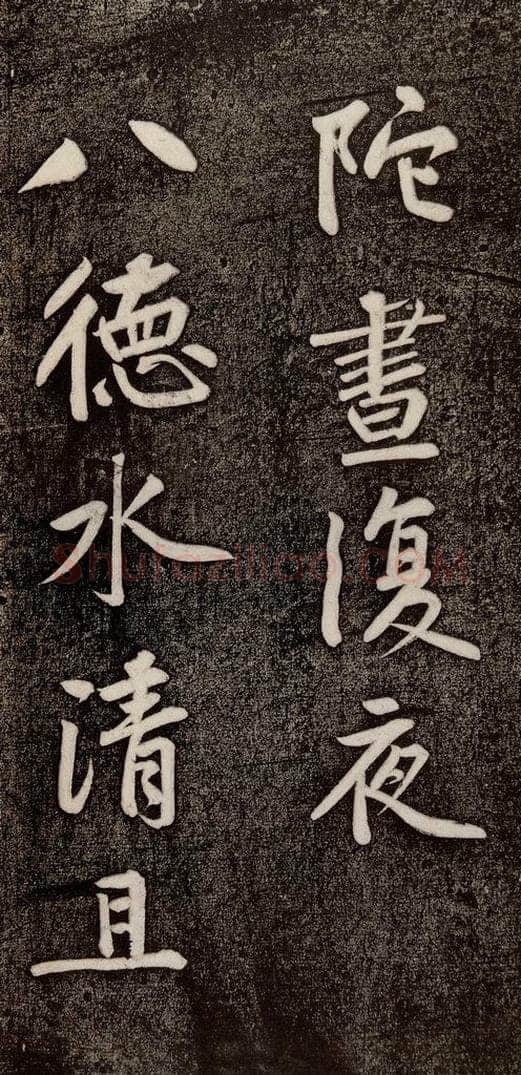 陀晝復夜
八徳水清且
Shufaziliao.COM